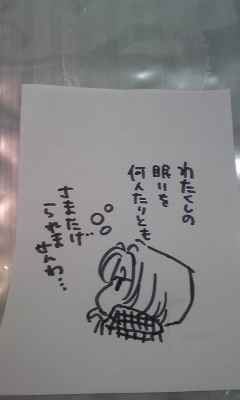 わたくしの
眠りを
何んたりとも
さまたげ
られませ
せんわ…